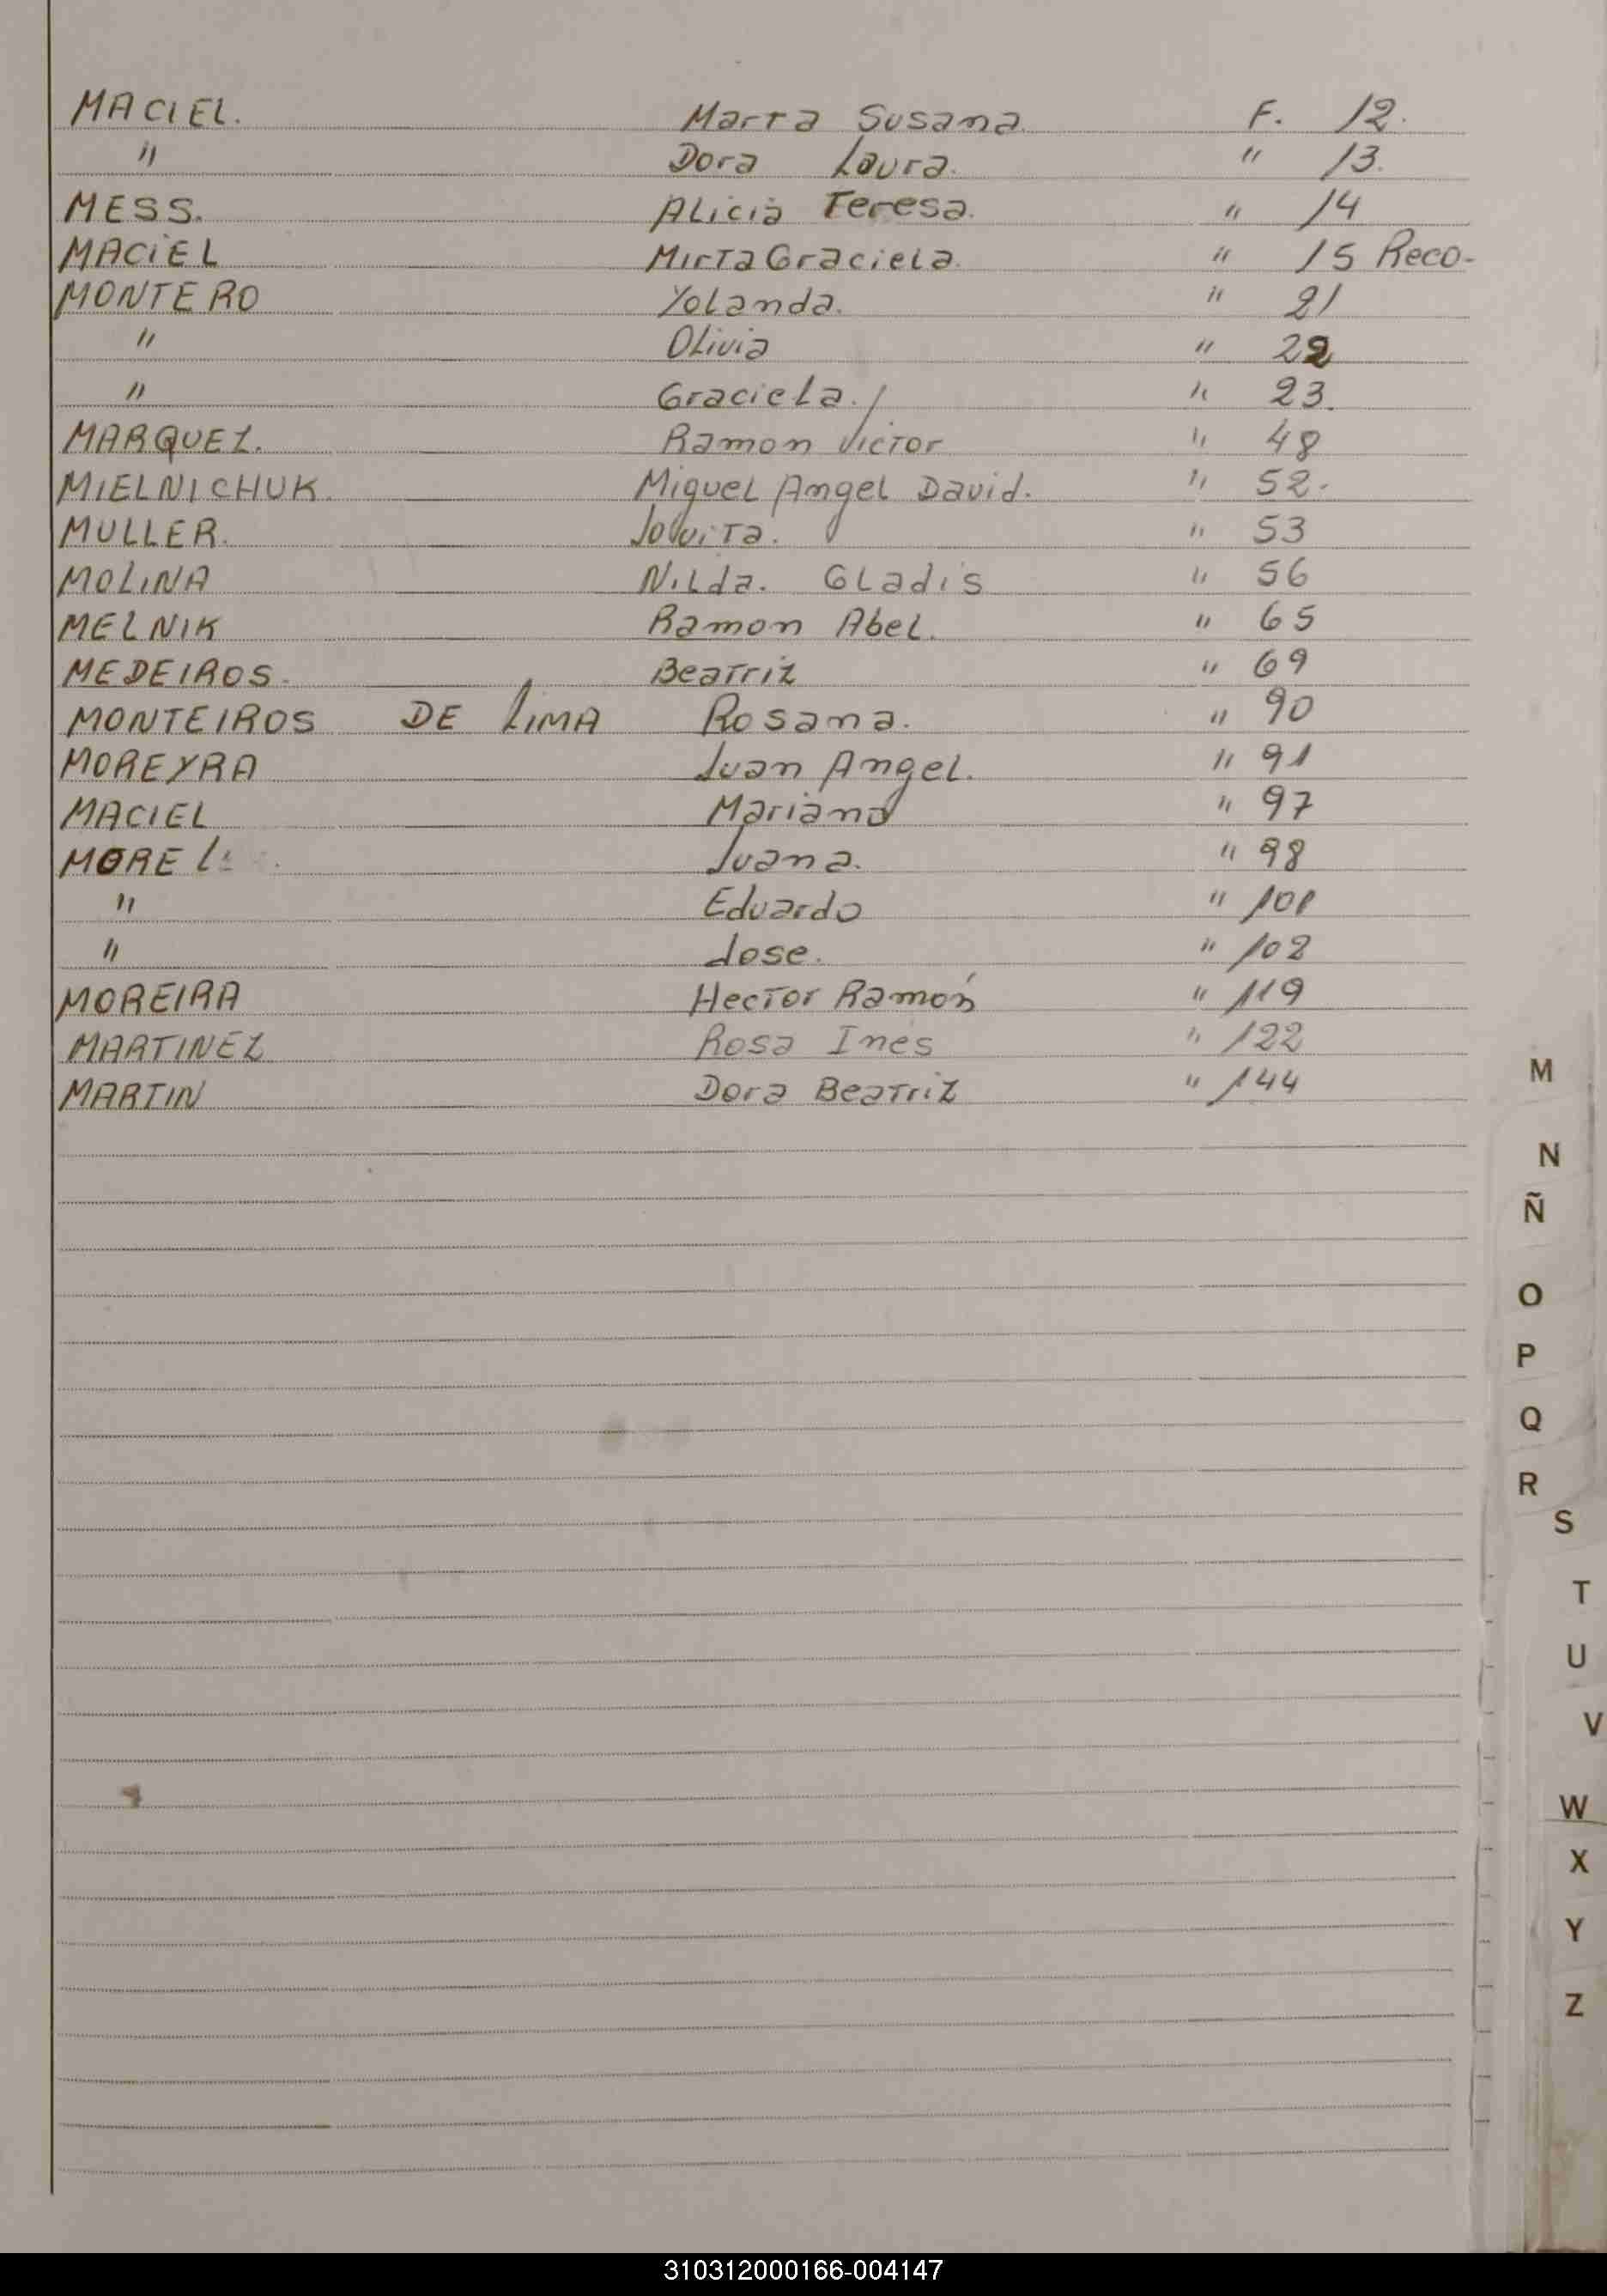 MACIEL. Marta Susana F. 12.
" Dora Laura. " 13.
MESS. Alicia Teresa. " 14
MACIEL Mirta Graciela. " 15 Reco-
MONTERO Yolanda. " 21
" Olivia " 22
" Graciela. " 23.
MARQUEZ. Ramon Victor " 48
MIELNICHUK. Miguel Angel David. " 52.
MULLER. Jovita. " 53
MOLINA Nilda. Gladis " 56
MELNIK Ramon Abel. " 65
MEDEIROS. Beatriz " 69
MONTEIROS DE LIMA Rosana. " 90
MOREYRA Juan Angel. " 91
MACIEL Mariano " 97
MOREL Juana. " 98
" Eduardo " 101
" Jose. " 102
MOREIRA Hector Ramón " 119
MARTINEZ Rosa Ines " 122
MARTIN Dora Beatriz " 144
M
N
Ñ
O
P
Q
R
S
T
U
V
W
X
Y
Z
310312000166-004147